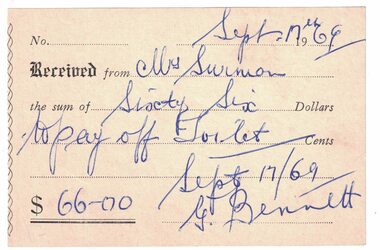 No. Sept. 17th 1969
Received from Mrs Surman
the sum of Sixty Six Dollars
to pay off Toilet Cents
Sept 17/69
$ 66-00 G. Bennett